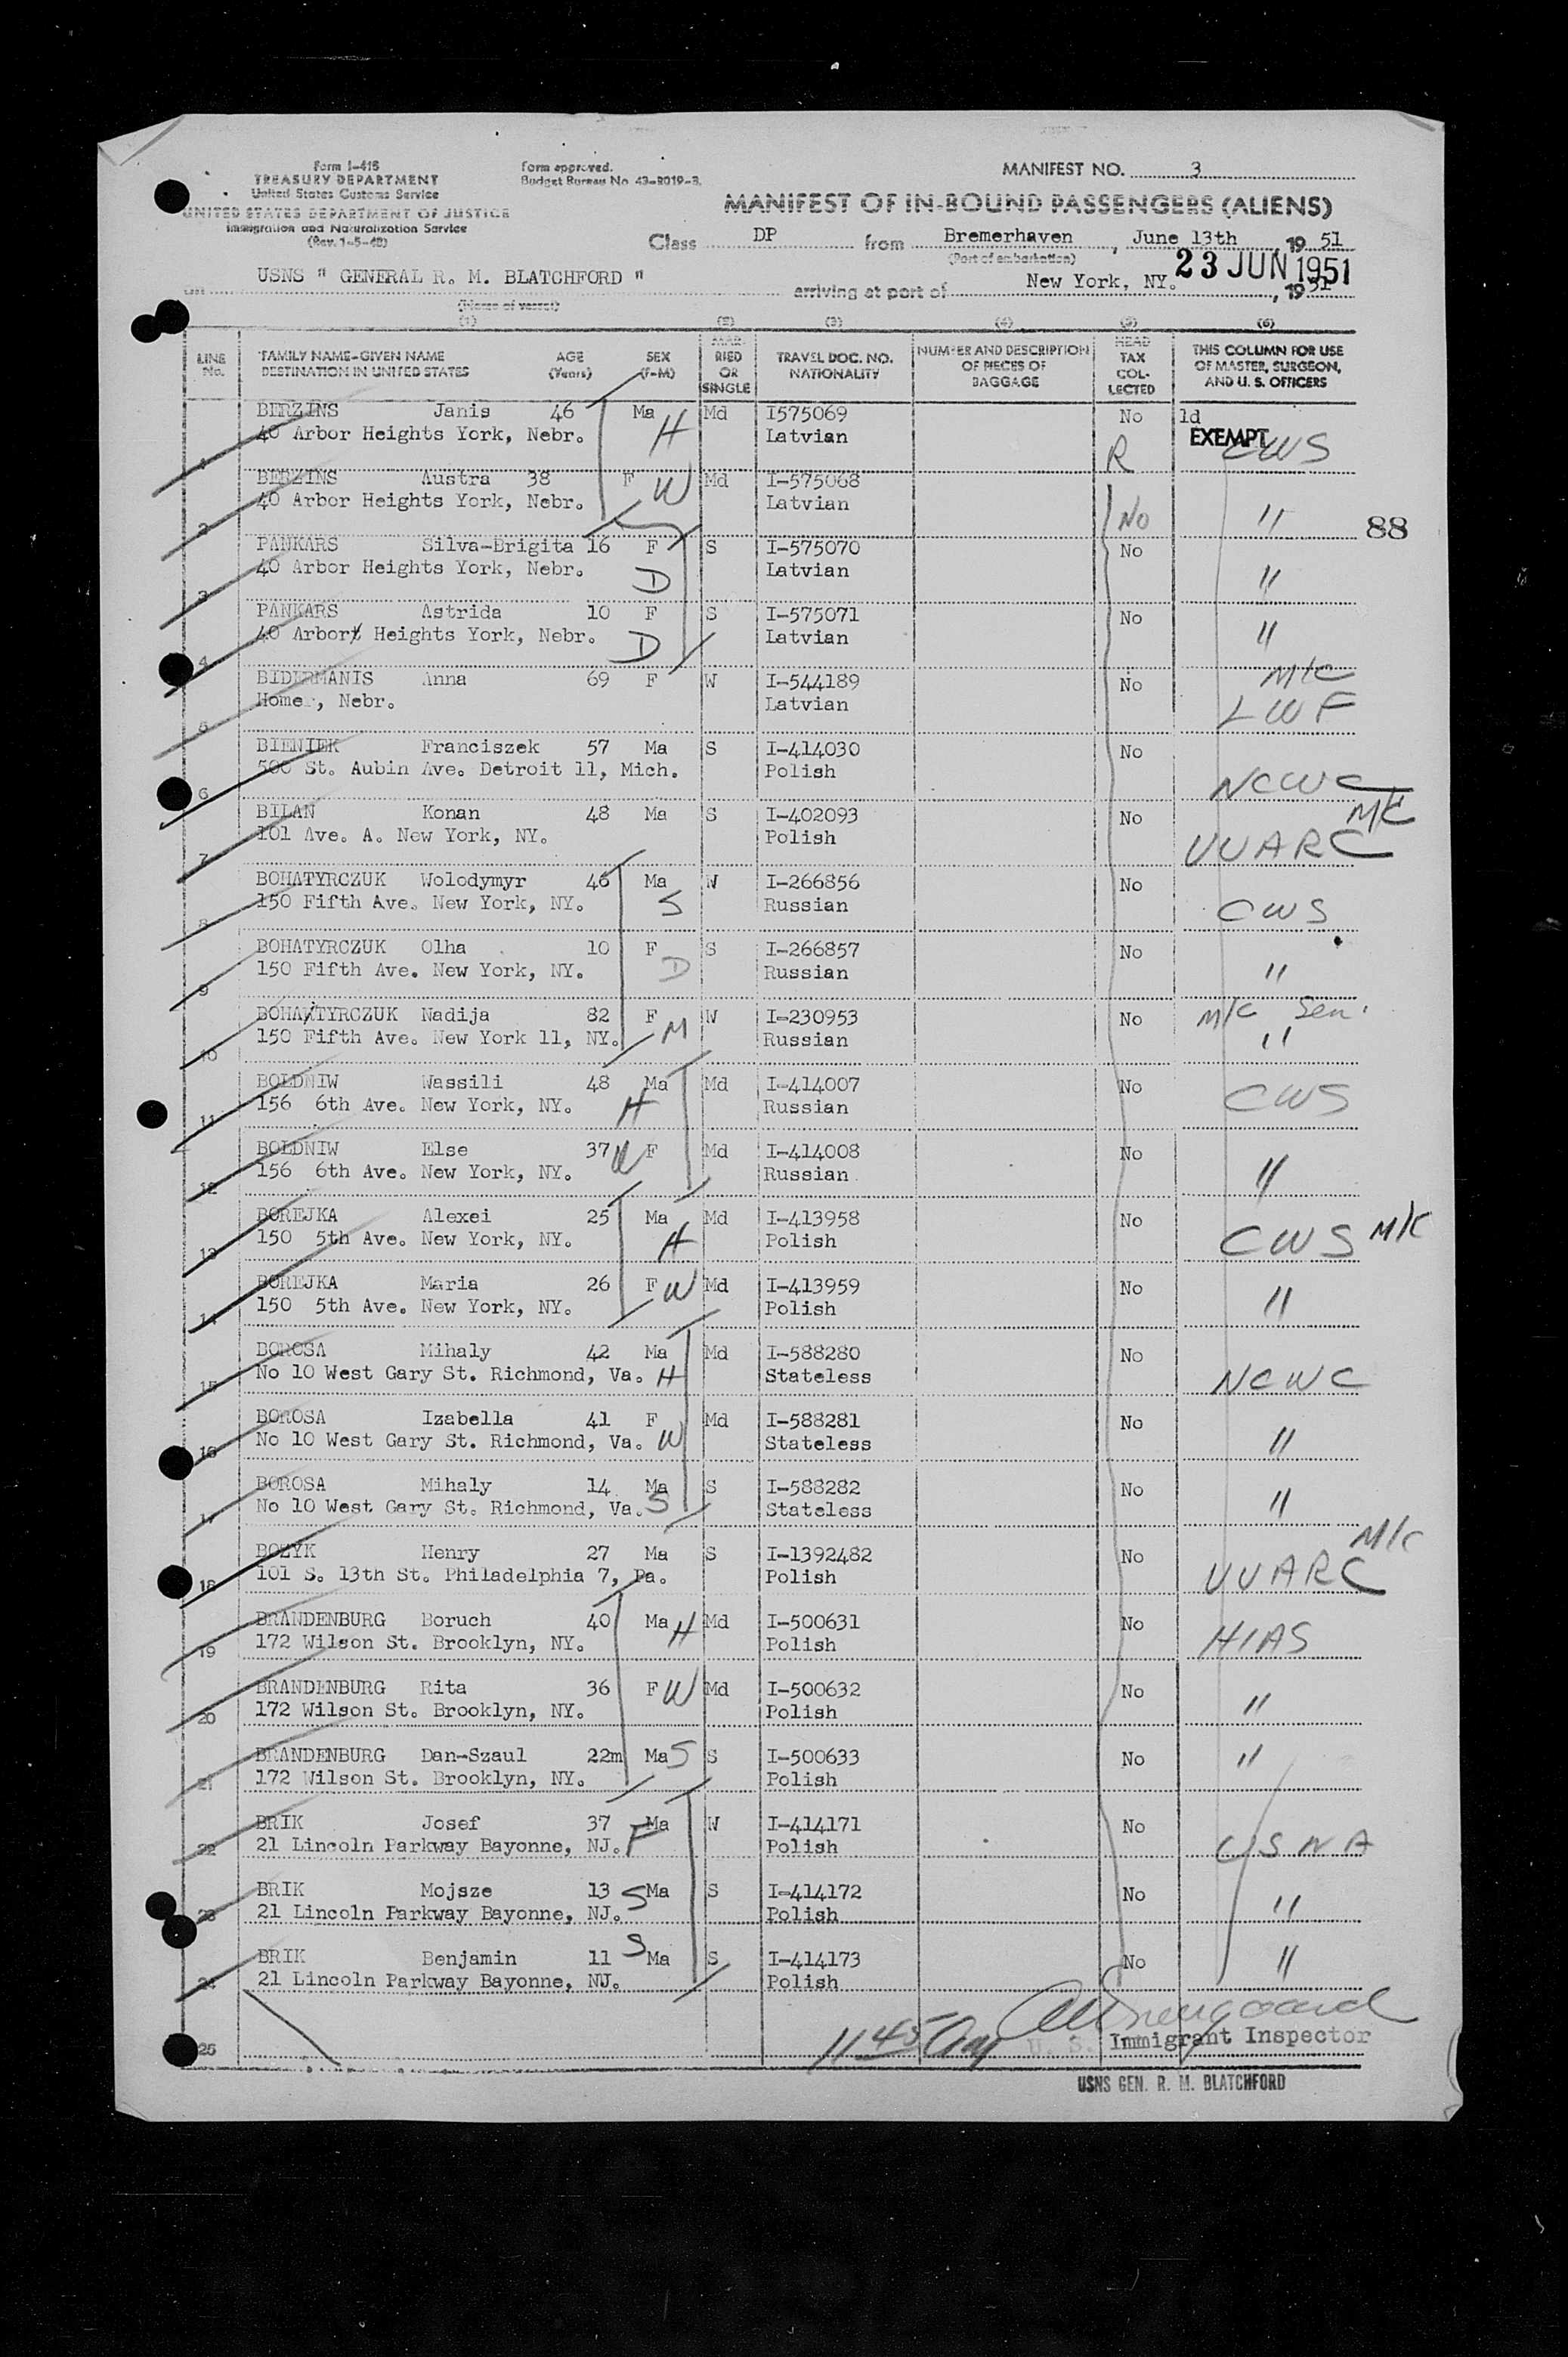 Form I-415
TREASURY DEPARTMENT
United States Customs Service
UNITED STATES DEPARTMENT OF JUSTICE
Immigration and Naturalization Service
(Rev. 1-5-48)
Form approved.
Budget Bureau No. 43-R019-3.
MANIFEST NO. 3
MANIFEST OF IN-BOUND PASSENGERS (ALIENS)
Class DP from Bremerhaven, June 13th, 1951
(Port of embarkation)
USNS " GENERAL R. M. BLATCHFORD " arriving at port of New York, NY. 23 JUN 1951, 1951
(Name of vessel)
(1) (2) (3) (4) (5) (6)
LINE No. FAMILY NAME-GIVEN NAME DESTINATION IN UNITED STATES AGE (Years) SEX (F-M) MARRIED OR SINGLE TRAVEL DOC. NO. NATIONALITY NUMBER AND DESCRIPTION OF PIECES OF BAGGAGE HEAD TAX COLLECTED THIS COLUMN FOR USE OF MASTER, SURGEON, AND U. S. OFFICERS
BERZINS Janis 46 Ma Md I575069 No 1d
1 40 Arbor Heights York, Nebr. H Latvian R EXEMPT CWS
BERZINS Austra 38 F W Md I-575068
2 40 Arbor Heights York, Nebr. Latvian No "
88
PANKARS Silva-Brigita 16 F S I-575070 No
3 40 Arbor Heights York, Nebr. D Latvian "
PANKARS Astrida 10 F S I-575071 No
4 40 Arbort Heights York, Nebr. D Latvian "
BIDERMANIS Anna 69 F W I-544189 No M/C
5 Home, Nebr. Latvian LWF
BIENIEK Franciszek 57 Ma S I-414030 No
6 500 St. Aubin Ave. Detroit 11, Mich. Polish NCWC
BILAN Konan 48 Ma S I-402093 No M/C
7 101 Ave. A. New York, NY. Polish UUARC
BOHATYRCZUK Wolodymyr 46 Ma W I-266856 No
8 150 Fifth Ave. New York, NY. S Russian CWS
BOHATYRCZUK Olha 10 F S I-266857 No
9 150 Fifth Ave. New York, NY. D Russian "
BOHATYRCZUK Nadija 82 F W I-230953 No M/C Sen.
10 150 Fifth Ave. New York 11, NY. M Russian "
BOLDNIW Wassili 48 Ma Md I-414007 No
11 156 6th Ave. New York, NY. H Russian CWS
BOLDNIW Else 37 W F Md I-414008 No
12 156 6th Ave. New York, NY. Russian "
BOREJKA Alexei 25 Ma Md I-413958 No
13 150 5th Ave. New York, NY. H Polish CWS M/C
BOREJKA Maria 26 F W Md I-413959 No
14 150 5th Ave. New York, NY. Polish "
BOROSA Mihaly 42 Ma Md I-588280 No
15 No 10 West Gary St. Richmond, Va. H Stateless NCWC
BOROSA Izabella 41 F Md I-588281 No
16 No 10 West Gary St. Richmond, Va. W Stateless "
BOROSA Mihaly 14 Ma S I-588282 No
17 No 10 West Gary St. Richmond, Va. S Stateless "
BOZYK Henry 27 Ma S I-1392482 No M/C
18 101 S. 13th St. Philadelphia 7, Pa. Polish UUARC
BRANDENBURG Boruch 40 Ma H Md I-500631 No
19 172 Wilson St. Brooklyn, NY. Polish HIAS
BRANDENBURG Rita 36 F W Md I-500632 No
20 172 Wilson St. Brooklyn, NY. Polish "
BRANDENBURG Dan-Szaul 22m Ma S S I-500633 No
21 172 Wilson St. Brooklyn, NY. Polish "
BRIK Josef 37 Ma W I-414171 No
22 21 Lincoln Parkway Bayonne, NJ. F Polish USNA
BRIK Mojsze 13 S Ma S I-414172 No
23 21 Lincoln Parkway Bayonne, NJ. Polish "
BRIK Benjamin 11 S Ma S I-414173 No
24 21 Lincoln Parkway Bayonne, NJ. Polish "
25 11 45 Am U. S. Immigrant Inspector
USNS GEN. R. M. BLATCHFORD